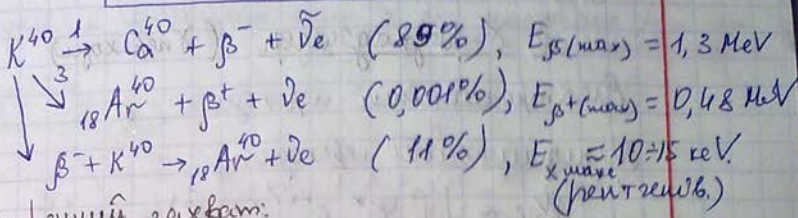 K⁴⁰ →¹ Ca⁴⁰ + β⁻ + ν̃e (89%), Eβ(max) = 1,3 MeV
3 ₁₈Ar⁴⁰ + β⁺ + νe (0,001%), Eβ⁺(max) = 0,48 MeV
β⁻ + K⁴⁰ → ₁₈Ar⁴⁰ + νe (11%), Eₓ ≈ 10÷15 keV.
(рентгенов.)
захват: